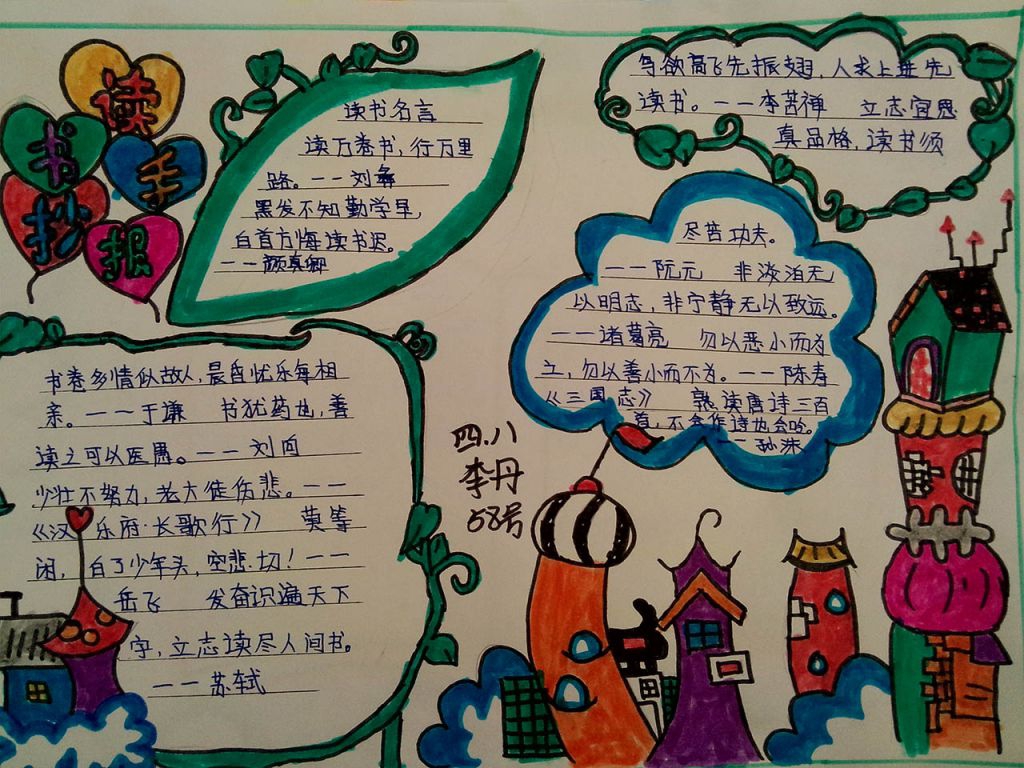 读
书
手
抄
报
读书名言
读万卷书，行万里
路。——刘彝
黑发不知勤学早，
白首方悔读书迟。
——颜真卿
鸟欲高飞先振翅，人求上进先
读书。——李苦禅　立志宜思
真品格，读书须
尽苦功夫。
——阮元　非淡泊无
以明志，非宁静无以致远。
——诸葛亮　勿以恶小而为
之，勿以善小而不为。——陈寿
《三国志》　熟读唐诗三百
首，不会作诗也会吟。
——孙洙
书卷多情似故人，晨昏忧乐每相
亲。——于谦　书犹药也，善
读之可以医愚。——刘向
少壮不努力，老大徒伤悲。——
《汉乐府·长歌行》　莫等
闲，白了少年头，空悲切！——
岳飞　发奋识遍天下
字，立志读尽人间书。
——苏轼
四.八
李丹
58号